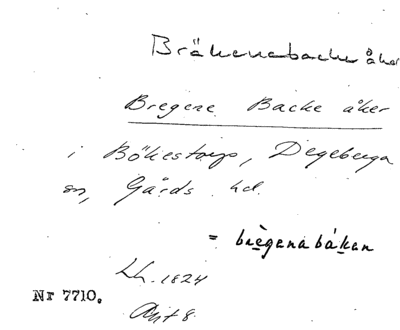 Bräkenabacke åker
Bregene Backe åker
i Bökestorps, Degeberga
sn, Gärds hd.
= brègenabákan
Lh. 1824
Akt 8.
Nr 7710.